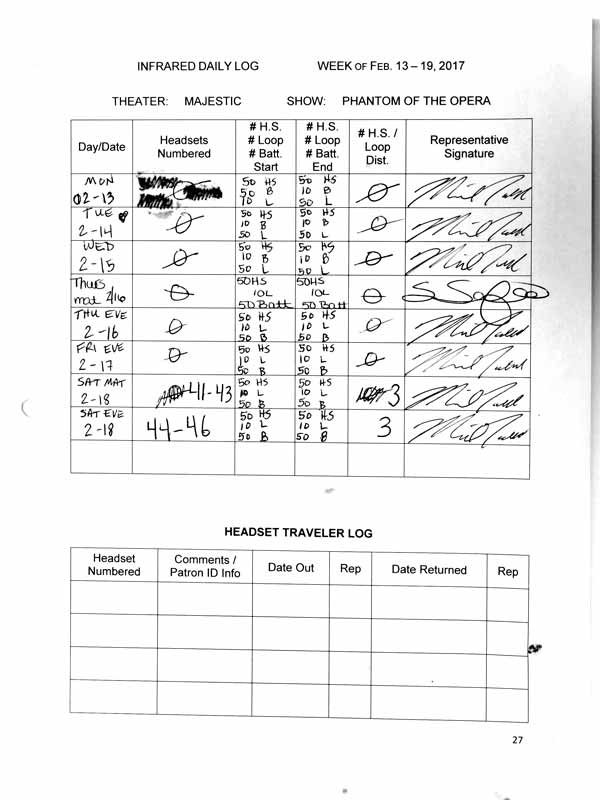 INFRARED DAILY LOG WEEK OF FEB. 13 – 19, 2017
THEATER: MAJESTIC SHOW: PHANTOM OF THE OPERA
Day/Date Headsets Numbered # H.S. # Loop # Batt. Start # H.S. # Loop # Batt. End # H.S. / Loop Dist. Representative Signature
MON 02-13 50 HS 50 B 10 L 50 HS 10 B 50 L Ø
TUE 2-14 Ø 50 HS 10 B 50 L 50 HS 10 B 50 L Ø
WED 2-15 Ø 50 HS 10 B 50 L 50 HS 10 B 50 L Ø
Thurs mat 2/16 Ø 50HS 10L 50 Batt 50HS 10L 50 Batt Ø
THU EVE 2-16 Ø 50 HS 10 L 50 B 50 HS 10 L 50 B Ø
FRI EVE 2-17 Ø 50 HS 10 L 50 B 50 HS 10 L 50 B Ø
SAT MAT 2-18 41-43 50 HS 10 L 50 B 50 HS 10 L 50 B 3
SAT EVE 2-18 44-46 50 HS 10 L 50 B 50 HS 10 L 50 B 3
HEADSET TRAVELER LOG
Headset Numbered Comments / Patron ID Info Date Out Rep Date Returned Rep
27